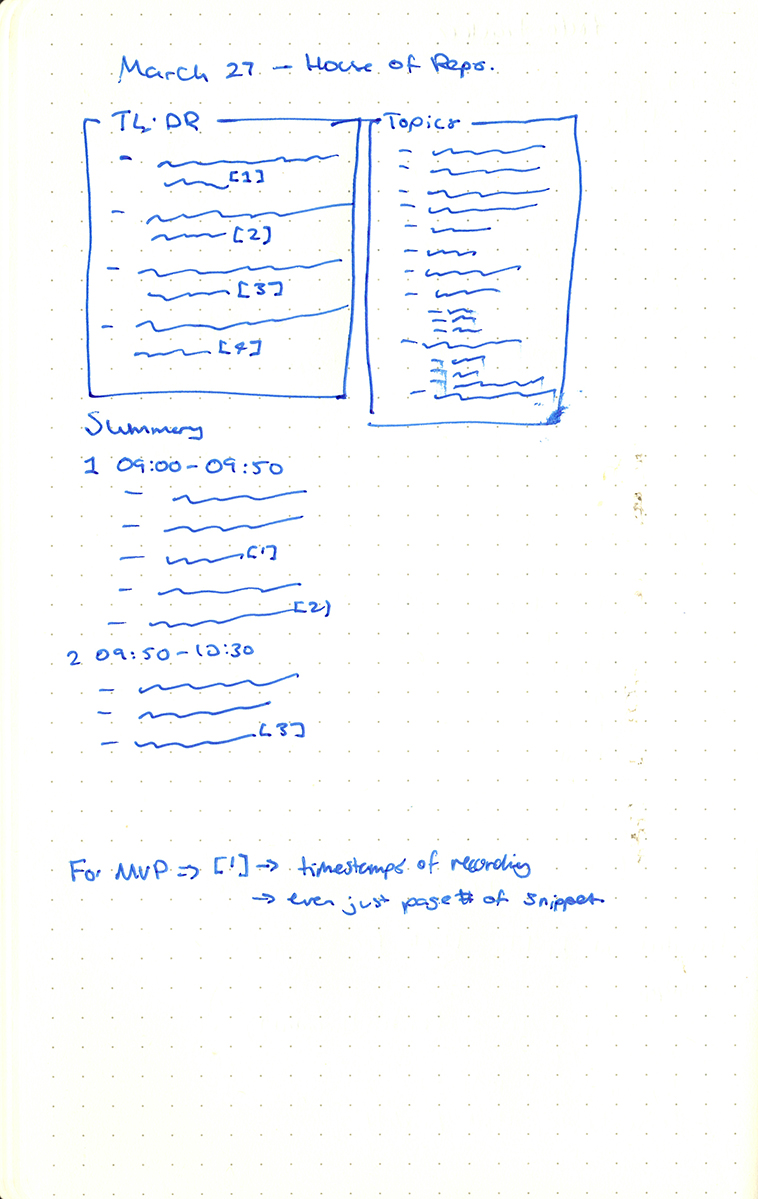 March 27 - House of Reps.
TL;DR
[1]
[2]
[3]
[4]
Topics
Summary
1 09:00 - 09:50
[1]
[2]
2 09:50 - 10:30
[3]
For MVP => [1] -> timestamps of recording
-> even just page # of snippet.